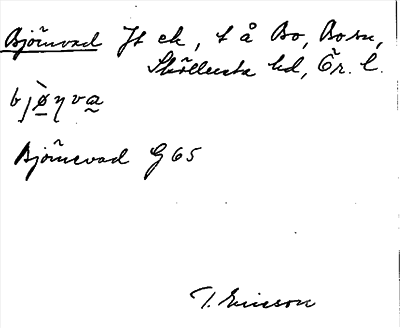 Björnvad Jf ek, t å Bo, Bo sn,
Sköllersta hd, Ör. l.
bjø̀ŋva
Björnevad G 65
T. Ericsson